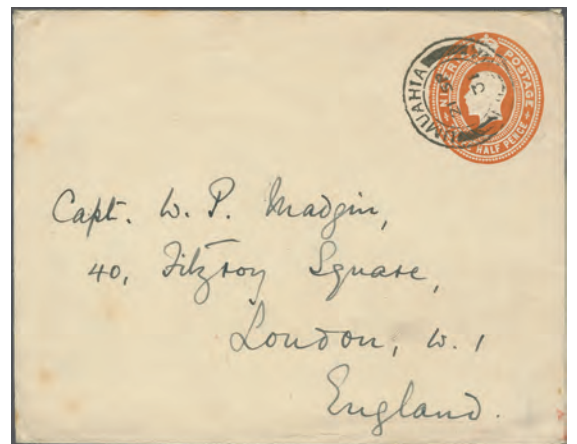 UMUAHIA
POSTAGE
HALF PENCE
Capt. W. P. Madgin,
40, Fitzroy Square,
London, W. 1
England.